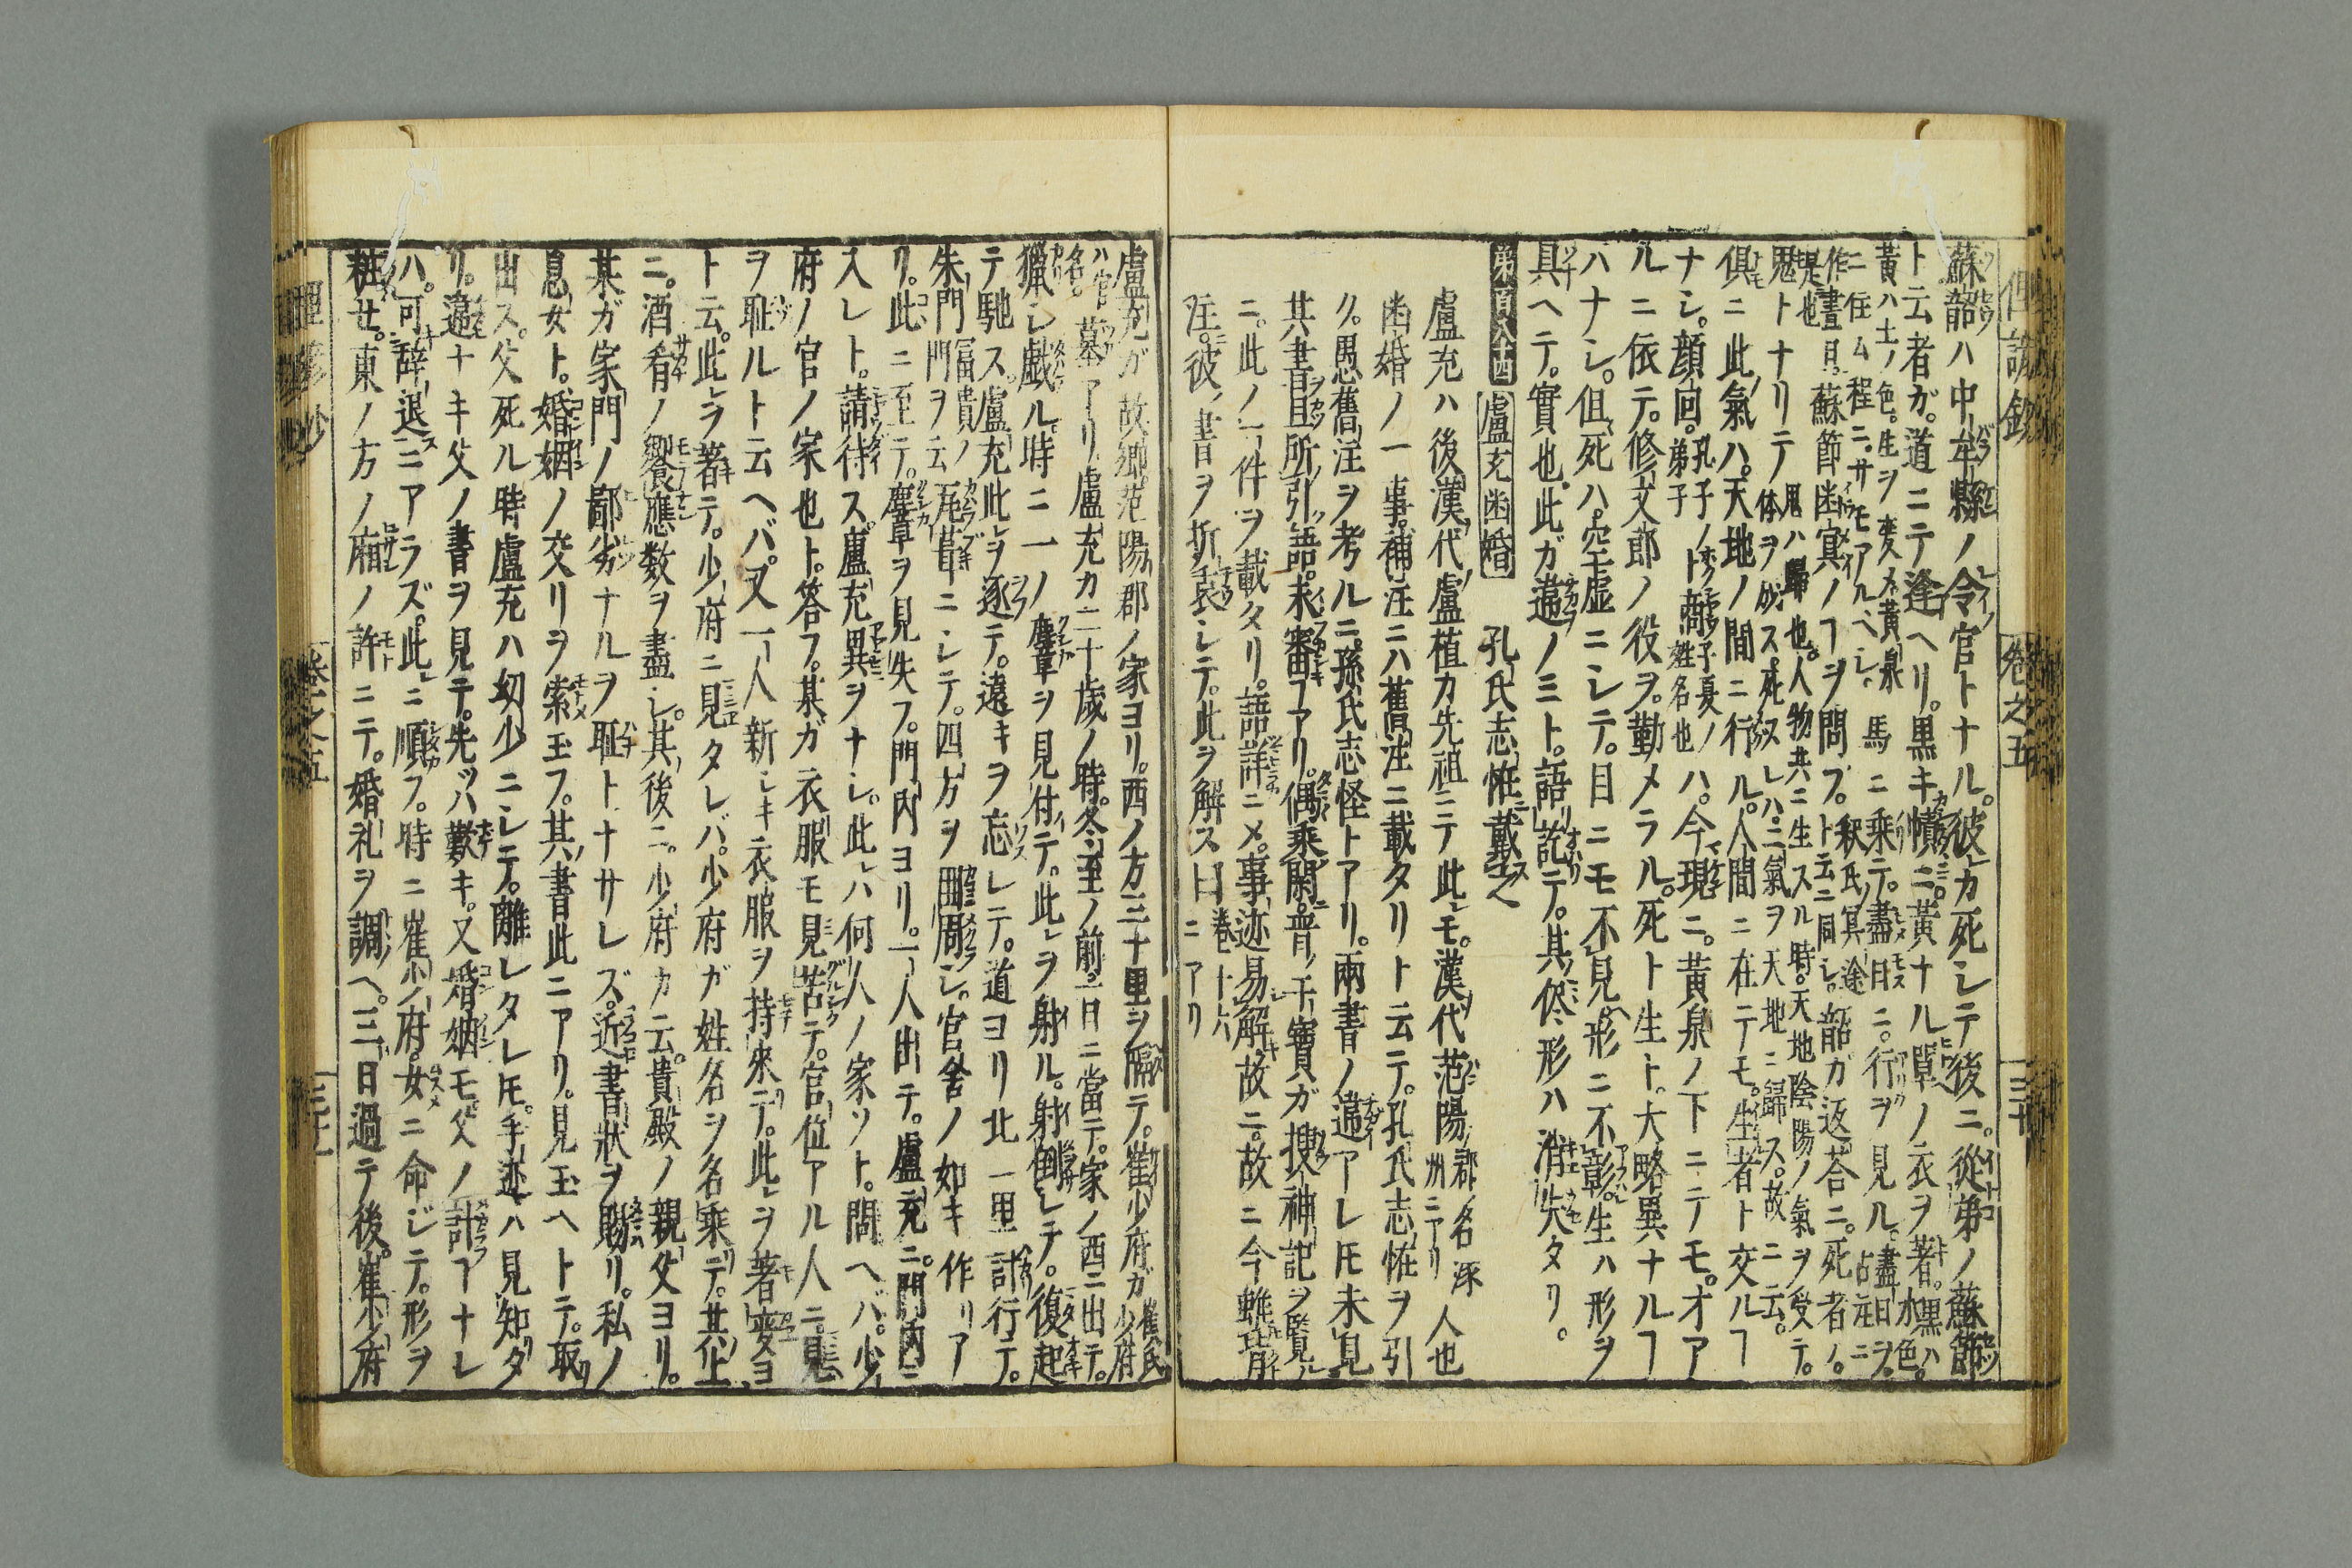 俚諺鈔 巻之五 三十
蘇韶ハ中牟縣ノ令官トナル。彼カ死シテ後ニ。從弟ノ蘇節
ト云者ガ。道ニテ逢ヘリ。黒キ幘ニ。黄ナル單ノ衣ヲ著。黒ハ水色。
黄ハ土ノ色。生ヲ変メ黄泉ニ住ム程ニ。サモアルヘシ。馬ニ乗テ。盡日ニ。行ヲ見ル。盡日ヲ占注ニ
作晝日是也 蘇節幽冥ノヿヲ問フ。釈氏冥途ト云ニ同シ。韶ガ返荅ニ。死者ノ。
鬼トナリテノ体ヲ成ス。鬼ハ歸也。人物共ニ生スル時。天地陰陽ノ氣ヲ受テ。死シヌレハ。二氣ヲ天地ニ歸ス。故ニ云。
俱ニ此氣ハ。天地ノ間ニ行ル。人間ニ在テモ。生者ト交ルヿ
ナシ。顔回。孔子ノ弟子ト商子夏ノ姓名也ハ。今現ニ。黄泉ノ下ニテモ。オア
ルニ依テ。修文郎ノ役ヲ。勤メラル。死ト生ト。大略異ナルヿ
ハナシ。但死ハ。空虚ニシテ。目ニモ不見形ニ不彰。生ハ形ヲ
具ヘテ。實也。此ガ違ノミト。語訖テ。其侭形ハ消失タリ。
第百八十四 盧充幽婚 孔氏志恠載之
盧充ハ後漢代盧植カ先祖ニテ此モ。漢代范陽郡ノ名涿州ニアリ人也
幽婚ノ一事。補注ニハ舊注ニ載タリト云テ。孔氏志恠ヲ引
ク。愚舊注ヲ考ルニ。孫氏志怪トアリ。兩書ノ違アレ𪜈未見
其書且所引語。未審ヿアリ。偶乗閑。晋ノ干寶ガ搜神記ヲ覧ル
ニ。此ノ一件ヲ載タリ。語詳ニメ。事迹易解故ニ。故ニ今雖背
注。彼書ヲ折衷シテ。此ヲ解ス曰巻十六ニアリ
盧充ガ故郷。范陽郡ノ家ヨリ。西ノ方三十里ヲ隔テ。崔少府ガ崔氏少府
ハ官名。墓アリ盧充カ二十歳ノ時。冬至ノ前。一日ニ當テ。家ノ西ニ出テ。
獵シ戯ル時ニ一ノ麞ヲ見付テ。此ヲ射ル。射倒シテ。復起
テ馳ス。盧充此ヲ逐テ。遠キヲ忘レテ。道ヨリ北一里計行テ。
朱門冨貴ノ門ヲ云瓦葺ニシテ。四方ヲ𨻶周シ。官舎ノ如キ作リア
リ。此ニ至テ。麞ヲ見失フ。門内ヨリ。一人出テ。盧充ニ。門内ニ
入レト。請待ス。盧充異ヲナシ。此ハ何人ノ家ソト。問ヘバ。少
府ノ官ノ家也ト。答フ。某ガ衣服モ見苦テ。官位アル人ニ。見
ヲ耻ルト云ヘバ。又一人新シキ衣服ヲ持來テ。此ヲ著変ヨ
ト云。此ヲ著テ。少府ニ見タレバ。少府ガ姓名ヲ名乗テ。其上
ニ。酒肴ノ饗應数ヲ盡シ。其後ニ。少府カ云。貴殿ノ親父ヨリ。
某ガ家門ノ鄙劣ナルヲ耻トナサレズ。近書狀ヲ賜リ。私ノ
息女ト。婚姻ノ交リヲ索玉フ。其書此ニアリ。見玉ヘトテ。取
出ス。父死ル時盧充ハ幼少ニシテ。離レタレ𪜈。手迹ハ見知タ
リ。違ナキ父ノ書ヲ見テ。先ッハ歎キ。又婚姻モ父ノ計ヿナレ
ハ。可辞退ニアラズ。此ニ順フ。時ニ崔少府。女ニ命ジテ。形ヲ
粧セ。東ノ方ノ廂ノ許ニテ。婚礼ヲ調ヘ。三日過テ後。崔少府
俚諺鈔 巻之五 三十一